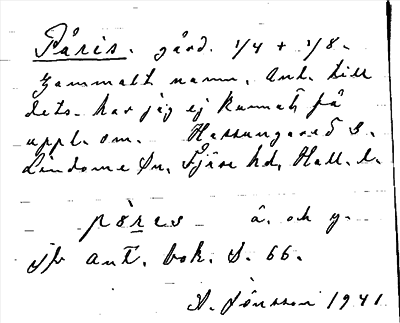 Påris. gård. 1/4 + 1/8.
Gammalt namn. Anl. till
dets. har jag ej kunnat få
uppl. om. Hassungared S.
Lindome Sn, Fjäre hd, Hall. l.
pò̤res ä. och y.
jfr ant. bok. S. 66.
A. Jönsson 1941